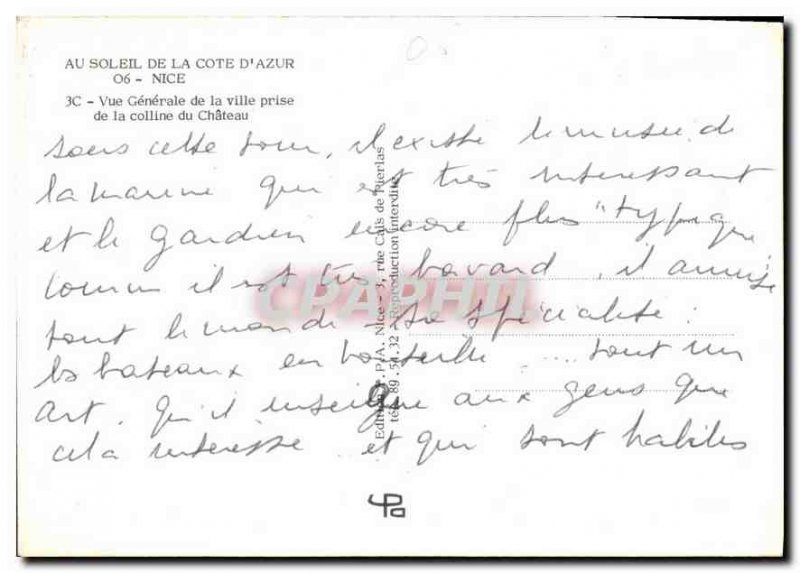 AU SOLEIL DE LA COTE D'AZUR
O6 - NICE
3C - Vue Générale de la ville prise
de la colline du Château
sous cette tour, il existe le musée de
la marine qui est très intéressant
et le gardien encore plus "typique"
comme il est très bavard, il amuse
tout le monde - sa spécialité :
les bateaux en bouteille .... tout un
art. qu'il enseigne aux gens que
cela intéresse et qui sont habiles
Edition E.P.A., Nice - 3, rue Caïs de Pierlas
tél. 89.54.32 - Reproduction interdite
CPAPHIL